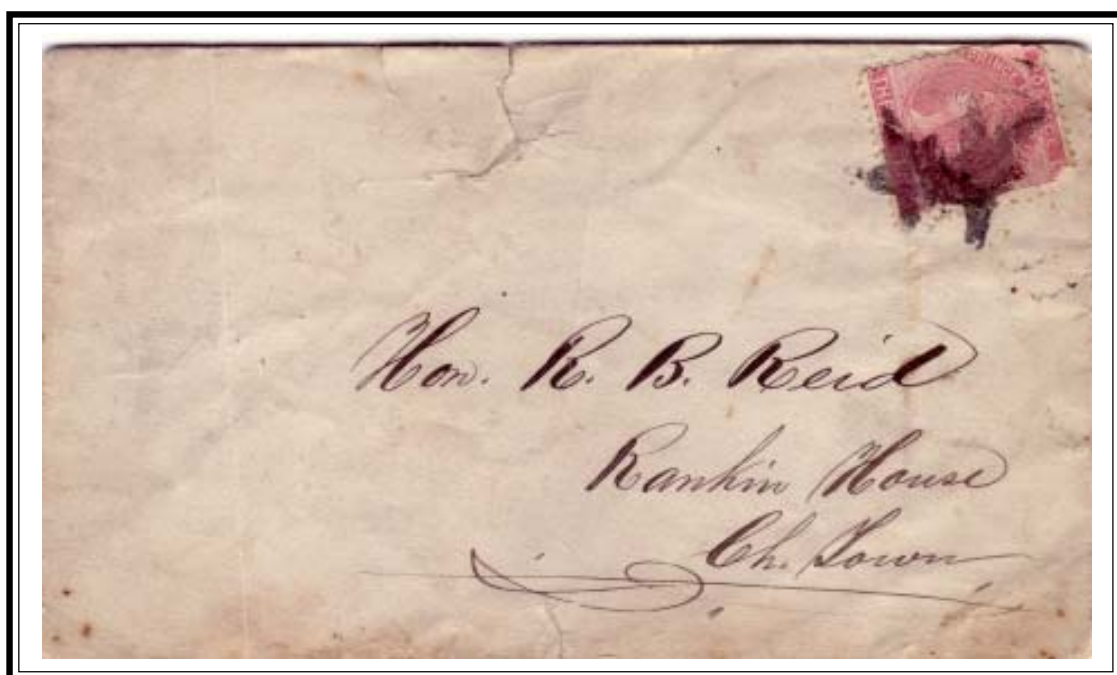 THE
Hon. R. B. Reid
Rankin House
Ch. Town